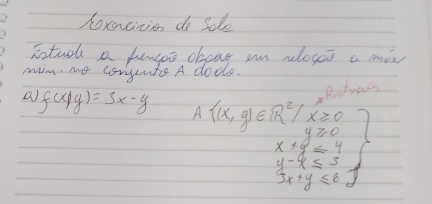 Exercícios de Sala
Estude a função abaixo em relação a máx
mín. no conjunto A dado.
Restrições
a) f(x,y) = 3x - y
A {(x, y) ∈ ℝ² / x ≥ 0
y ≥ 0
x + y ≤ 4
y - x ≤ 3
3x + y ≤ 6 }